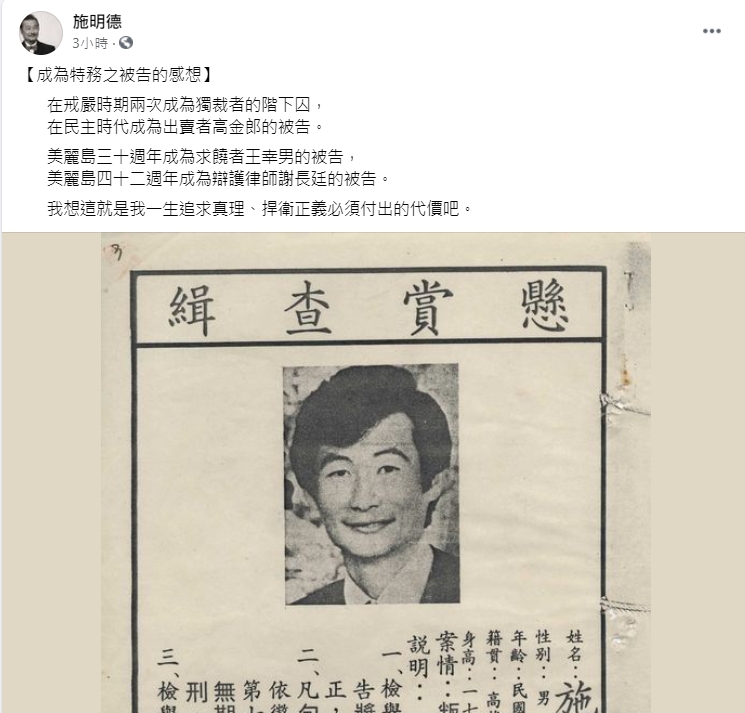 施明德
3小時 ·
【成為特務之被告的感想】
在戒嚴時期兩次成為獨裁者的階下囚，
在民主時代成為出賣者高金郎的被告。
美麗島三十週年成為求饒者王幸男的被告，
美麗島四十二週年成為辯護律師謝長廷的被告。
我想這就是我一生追求真理、捍衛正義必須付出的代價吧。
3
懸賞查緝
姓名：施
性別：男
年齡：民國
籍貫：高
身高：一七
案情：叛
說明：
一、檢舉
告獎
二、凡
正，
依懲
第七
無期
刑
三、檢舉